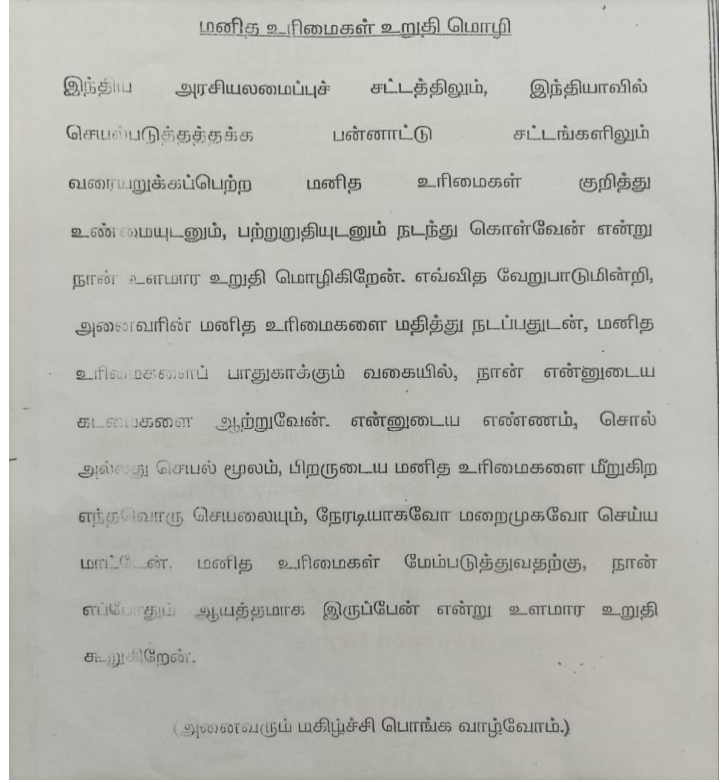 மனித உரிமைகள் உறுதி மொழி
இந்திய அரசியலமைப்புச் சட்டத்திலும், இந்தியாவில்
செயல்படுத்தத்தக்க பன்னாட்டு சட்டங்களிலும்
வரையறுக்கப்பெற்ற மனித உரிமைகள் குறித்து
உண்மையுடனும், பற்றுறுதியுடனும் நடந்து கொள்வேன் என்று
நான் உளமார உறுதி மொழிகிறேன். எவ்வித வேறுபாடுமின்றி,
அனைவரின் மனித உரிமைகளை மதித்து நடப்பதுடன், மனித
உரிமைகளைப் பாதுகாக்கும் வகையில், நான் என்னுடைய
கடமைகளை ஆற்றுவேன். என்னுடைய எண்ணம், சொல்
அல்லது செயல் மூலம், பிறருடைய மனித உரிமைகளை மீறுகிற
எந்தவொரு செயலையும், நேரடியாகவோ மறைமுகவோ செய்ய
மாட்டேன். மனித உரிமைகள் மேம்படுத்துவதற்கு, நான்
எப்போதும் ஆயத்தமாக இருப்பேன் என்று உளமார உறுதி
கூறுகிறேன்.
(அனைவரும் மகிழ்ச்சி பொங்க வாழ்வோம்.)